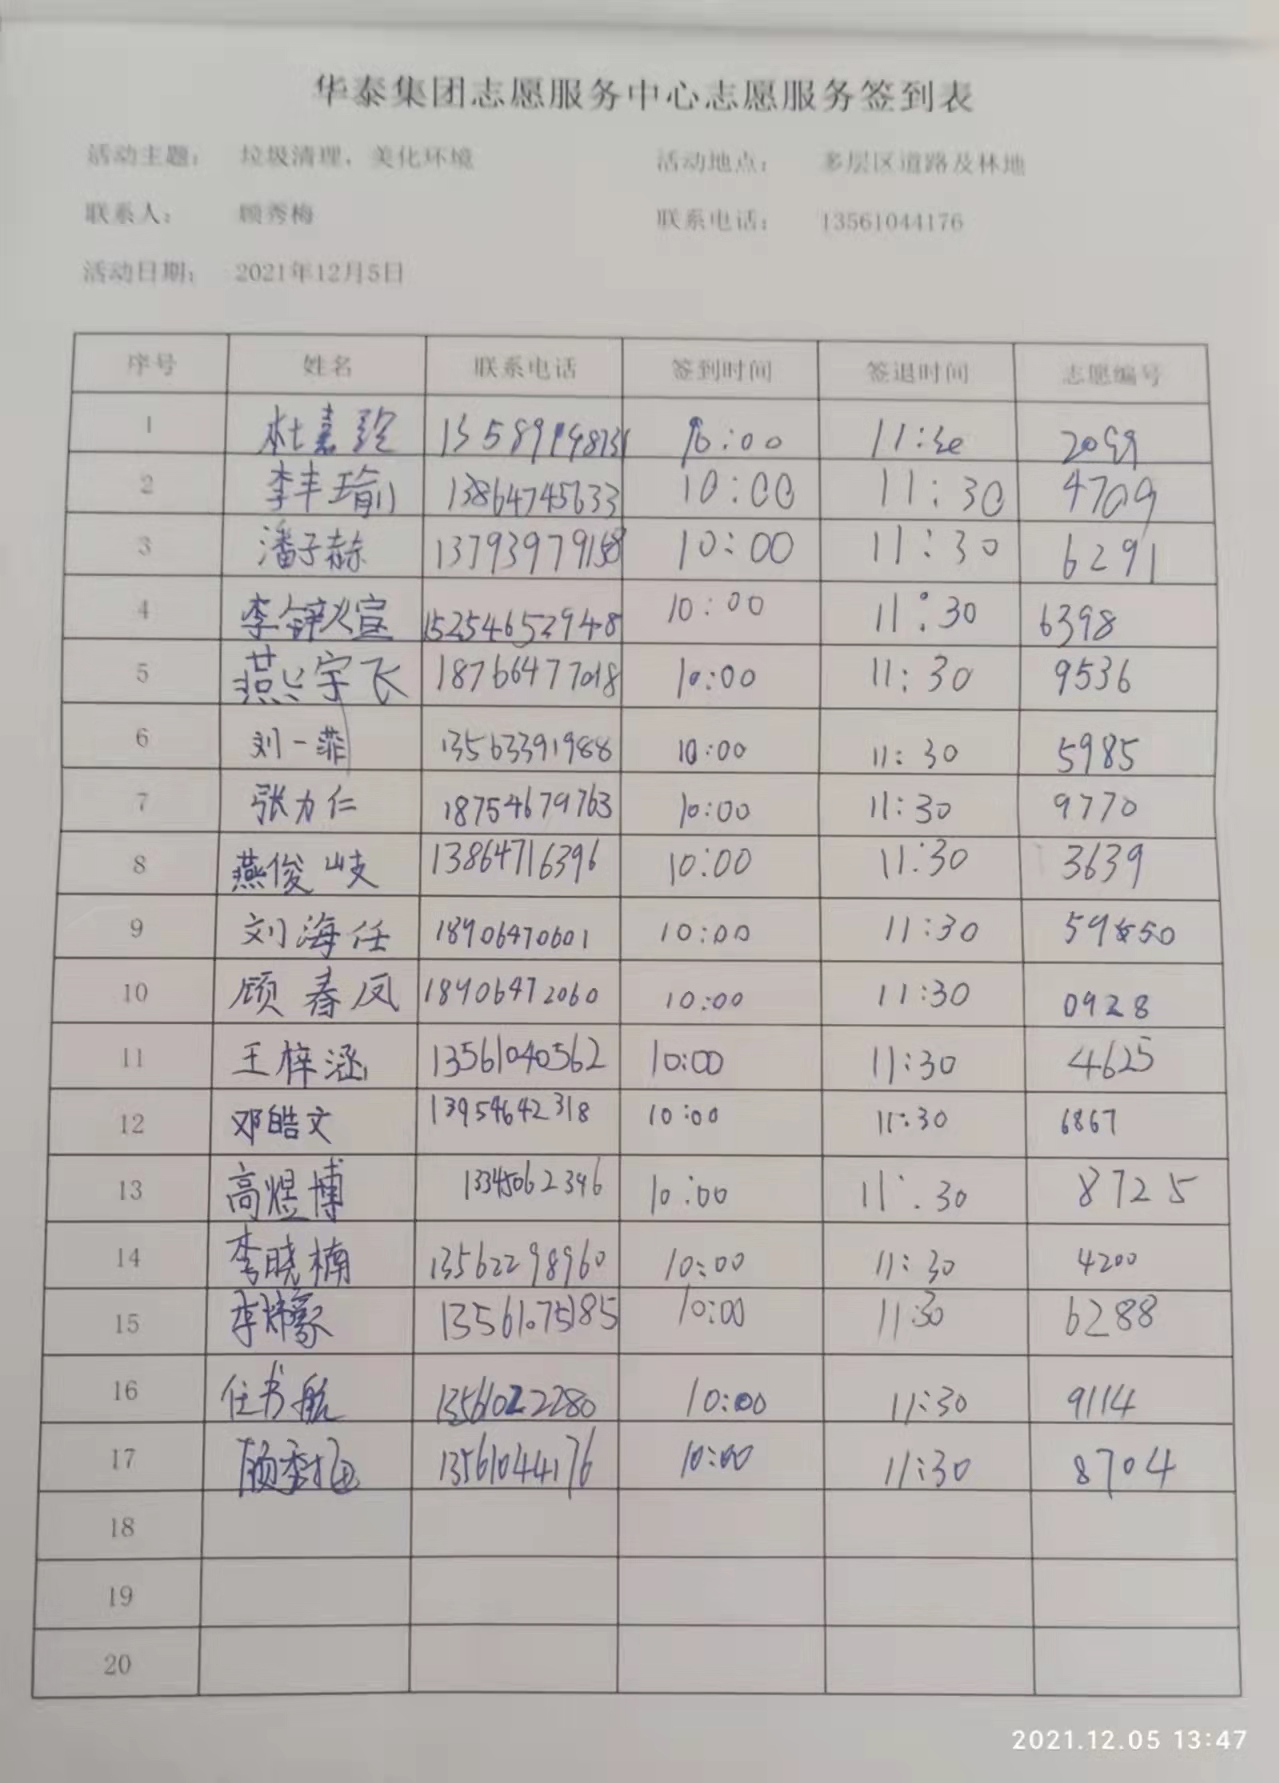 华泰集团志愿服务中心志愿服务签到表
活动主题： 垃圾清理、美化环境 活动地点： 多层区道路及林地
联系人： 顾秀梅 联系电话： 13561044176
活动日期： 2021年12月5日
序号 姓名 联系电话 签到时间 签退时间 志愿编号
1 杜嘉 10:00 11:30
2 李丰瑜 13864745633 10:00 11:30 4709
3 潘子赫 13793979158 10:00 11:30 6291
4 李 煊 15254652948 10:00 11:30 6398
5 燕宇飞 18766477018 10:00 11:30 9536
6 刘一菲 13563391988 10:00 11:30 5985
7 张力仁 18754679763 10:00 11:30 9770
8 燕俊岐 13864716396 10:00 11:30 3639
9 刘海任 18906470601 10:00 11:30
10 顾春凤 18906472060 10:00 11:30 0928
11 王梓涵 13561040562 10:00 11:30 4625
12 邓皓文 13954642318 10:00 11:30 6867
13 高煜博 13345062396 10:00 11:30 8725
14 李晓楠 13562298960 10:00 11:30 4200
15 李 豪 13561075185 10:00 11:30 6288
16 任书航 13561022280 10:00 11:30 9114
17 顾秀梅 13561044176 10:00 11:30 8704
18
19
20
2021.12.05 13:47